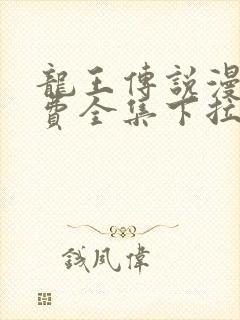 龍王傳說漫
費全集下拉
錢風偉